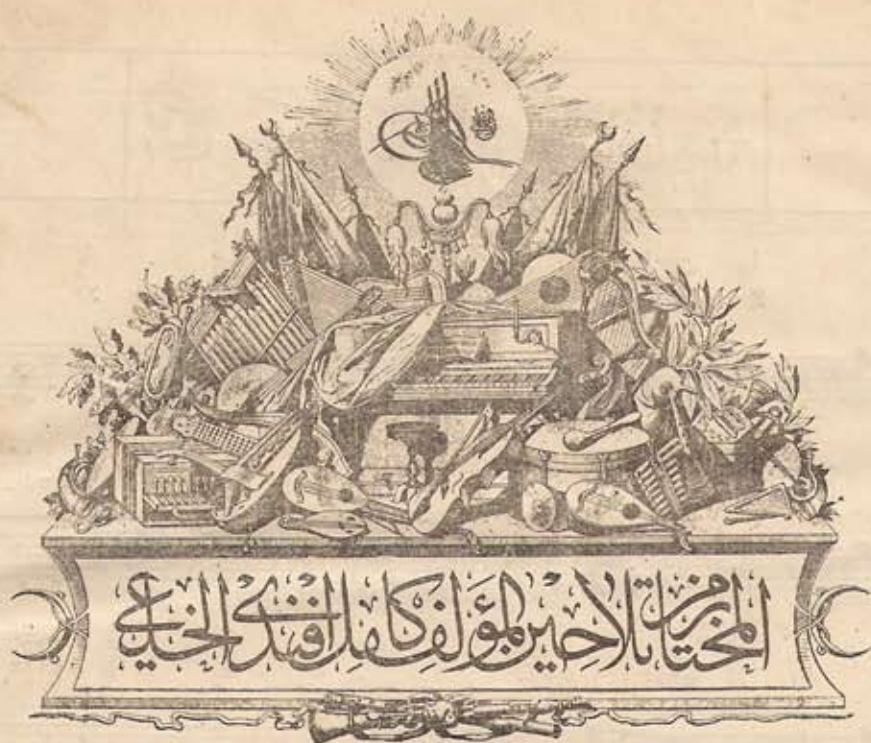 المختار من تلاحين المؤلف كامل افندى الخلعى